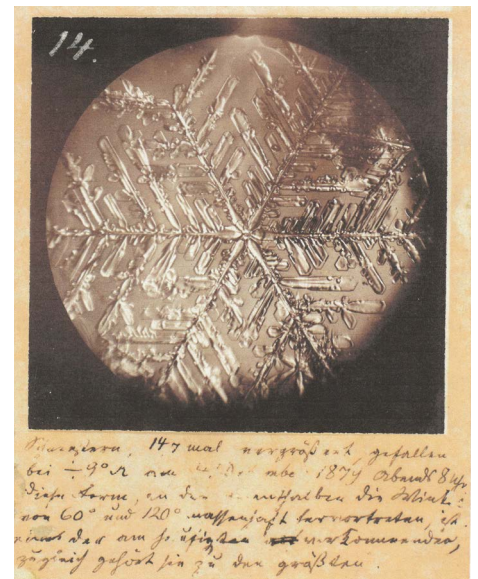 14.
147 mal vergrößert, gefallen
bei ÷ 9° R am 1879 Abends 8 Uhr
diese Form, an der die Winkel
von 60° und 120° massenhaft hervortreten, ist
eines der am häufigsten vorkommenden,
zugleich gehört sie zu den größten.